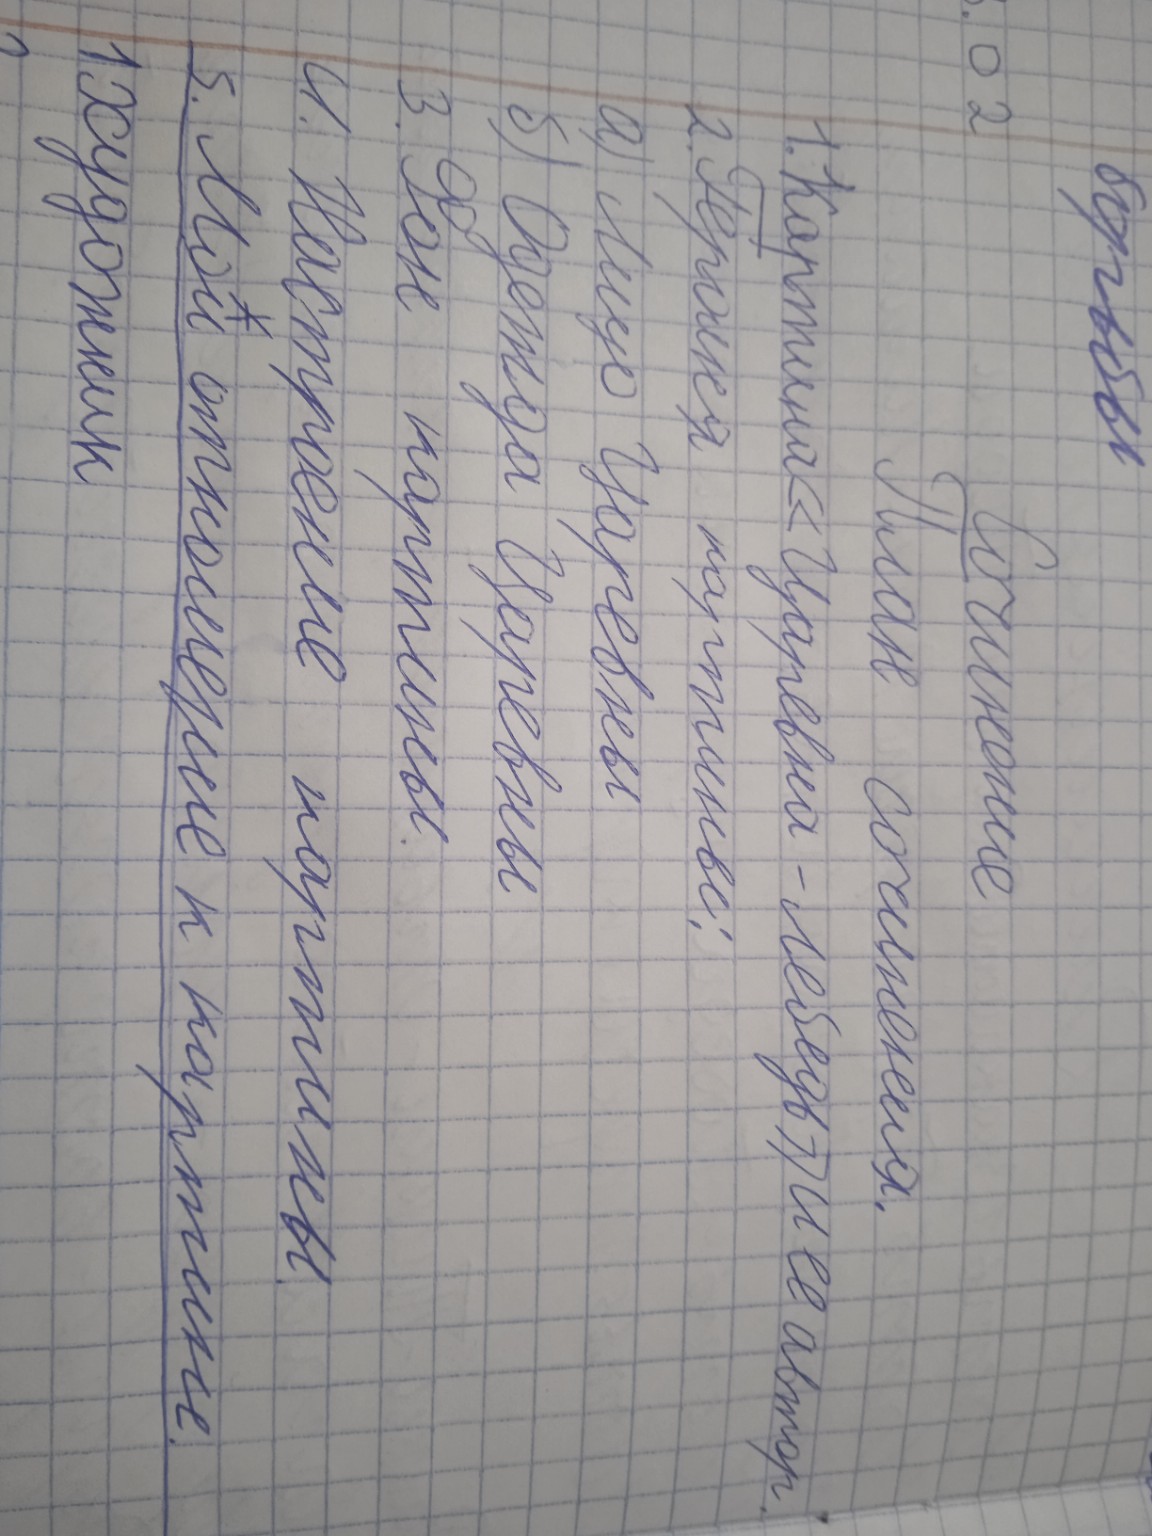 борьбы
.02
Сочинение
План сочинения.
1. Картина «Царевна-лебедь» и ее автор.
2. Героиня картины:
а) Лицо Царевны
б) Одежда Царевны
3. Фон картины.
4. Настроение картины.
5. Моё отношение к картине.
1 Художник